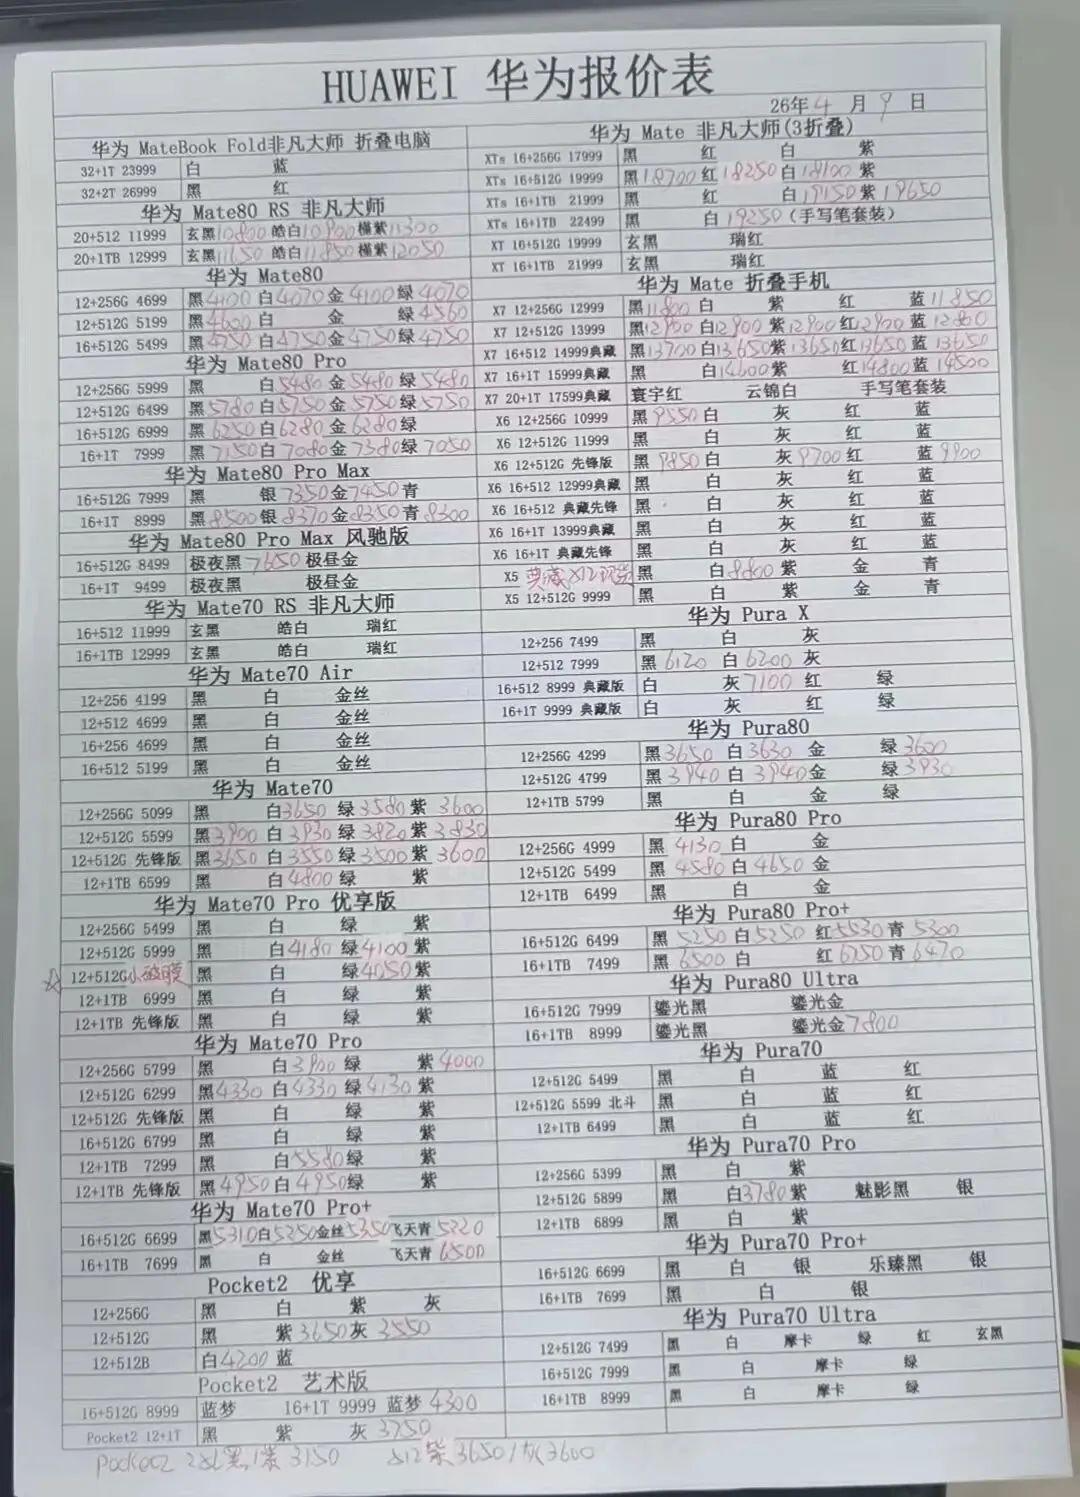 HUAWEI 华为报价表
26年4月9日
华为 MateBook Fold非凡大师 折叠电脑
32+1T 23999 白 蓝
32+2T 26999 黑 红
华为 Mate80 RS 非凡大师
20+512 11999 玄黑10800 皓白10900 槿紫11300
20+1TB 12999 玄黑11650 皓白11850 槿紫12050
华为 Mate80
12+256G 4699 黑4100 白4070 金4100 绿4070
12+512G 5199 黑4600 白 金 绿4560
16+512G 5499 黑4750 白4750 金4750 绿4750
华为 Mate80 Pro
12+256G 5999 黑 白5480 金5480 绿5480
12+512G 6499 黑5780 白5750 金5750 绿5750
16+512G 6999 黑6250 白6280 金6280 绿
16+1T 7999 黑7150 白7080 金7380 绿7050
华为 Mate80 Pro Max
16+512G 7999 黑 银7350 金7450 青
16+1T 8999 黑8500 银8370 金8350 青8300
华为 Mate80 Pro Max 风驰版
16+512G 8499 极夜黑7650 极昼金
16+1T 9499 极夜黑 极昼金
华为 Mate70 RS 非凡大师
16+512 11999 玄黑 皓白 瑞红
16+1TB 12999 玄黑 皓白 瑞红
华为 Mate70 Air
12+256 4199 黑 白 金丝
12+512 4699 黑 白 金丝
16+256 4699 黑 白 金丝
16+512 5199 黑 白 金丝
华为 Mate70
12+256G 5099 黑 白3650 绿3580 紫3600
12+512G 5599 黑3900 白3930 绿3820 紫3830
12+512G 先锋版 黑3650 白3550 绿3500 紫3600
12+1TB 6599 黑 白4800 绿 紫
华为 Mate70 Pro 优享版
12+256G 5499 黑 白 绿 紫
12+512G 5999 黑 白4180 绿4100 紫
☆ 12+512G小破膜 黑 白 绿4050 紫
12+1TB 6999 黑 白 绿 紫
12+1TB 先锋版 黑 白 绿 紫
华为 Mate70 Pro
12+256G 5799 黑 白3900 绿 紫4000
12+512G 6299 黑4330 白4330 绿4130 紫
12+512G 先锋版 黑 白 绿 紫
16+512G 6799 黑 白 绿 紫
12+1TB 7299 黑 白5580 绿 紫
12+1TB 先锋版 黑4950 白4950 绿 紫
华为 Mate70 Pro+
16+512G 6699 黑5310 白5250 金丝5350 飞天青5220
16+1TB 7699 黑 白 金丝 飞天青6500
Pocket2 优享
12+256G 黑 白 紫 灰
12+512G 黑 紫3650 灰3550
12+512B 白4200 蓝
Pocket2 艺术版
16+512G 8999 蓝梦 16+1T 9999 蓝梦 4300
Pocket2 12+1T 黑 紫 灰 3750
华为 Mate 非凡大师(3折叠)
XTs 16+256G 17999 黑 红 白 紫
XTs 16+512G 19999 黑18700 红18250 白18100 紫
XTs 16+1TB 21999 黑 红 白19150 紫19650
XTs 16+1TB 22499 黑 白19250 (手写笔套装)
XT 16+512G 19999 玄黑 瑞红
XT 16+1TB 21999 玄黑 瑞红
华为 Mate 折叠手机
X7 12+256G 12999 黑11800 白 紫 红 蓝11850
X7 12+512G 13999 黑12900 白12900 紫12900 红12900 蓝12800
X7 16+512 14999典藏 黑13700 白13650 紫13650 红13650 蓝13650
X7 16+1T 15999典藏 白14600 紫 红14800 蓝14500
X7 20+1T 17599典藏 寰宇红 云锦白 手写笔套装
X6 12+256G 10999 黑9550 白 灰 红 蓝
X6 12+512G 11999 黑 白 灰 红 蓝
X6 12+512G 先锋版 黑9850 白 灰9700 红 蓝9900
X6 16+512 12999典藏 黑 白 灰 红 蓝
X6 16+512 典藏先锋 黑 白 灰 红 蓝
X6 16+1T 13999典藏 黑 白 灰 红 蓝
X6 16+1T 典藏先锋 黑 白 灰 红 蓝
X5 典藏 512 黑 白8800 紫 金 青
X5 12+512G 9999 黑 白 紫 金 青
华为 Pura X
12+256 7499 黑 白 灰
12+512 7999 黑6120 白6200 灰
16+512 8999 典藏版 白 灰7100 红 绿
16+1T 9999 典藏版 白 灰 红 绿
华为 Pura80
12+256G 4299 黑3650 白3630 金 绿3600
12+512G 4799 黑3940 白3940 金 绿3930
12+1TB 5799 黑 白 金 绿
华为 Pura80 Pro
12+256G 4999 黑4130 白 金
12+512G 5499 黑4580 白4650 金
12+1TB 6499 黑 白 金
华为 Pura80 Pro+
16+512G 6499 黑5250 白5250 红5530 青5300
16+1TB 7499 黑6500 白 红6750 青6470
华为 Pura80 Ultra
16+512G 7999 鎏光黑 鎏光金
16+1TB 8999 鎏光黑 鎏光金7800
华为 Pura70
12+512G 5499 黑 白 蓝 红
12+512G 5599 北斗 黑 白 蓝 红
12+1TB 6499 黑 白 蓝 红
华为 Pura70 Pro
12+256G 5399 黑 白 紫
12+512G 5899 黑 白3780 紫 魅影黑 银
12+1TB 6899 黑 白 紫
华为 Pura70 Pro+
16+512G 6699 黑 白 银 乐臻黑 银
16+1TB 7699 黑 白 银
华为 Pura70 Ultra
12+512G 7499 黑 白 摩卡 绿 红 玄黑
16+512G 7999 黑 白 摩卡 绿
16+1TB 8999 黑 白 摩卡 绿
Pocket2 256黑/紫 3150 512紫3650/灰3600